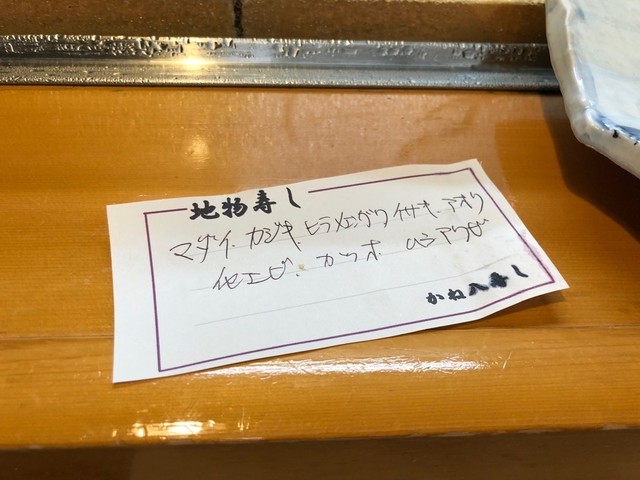 地物寿し
マダイ、カジキ、ヒラメエンガワ イサキ、アオリ
伊セエビ、カツオ ハシアワビ
かね八寿し